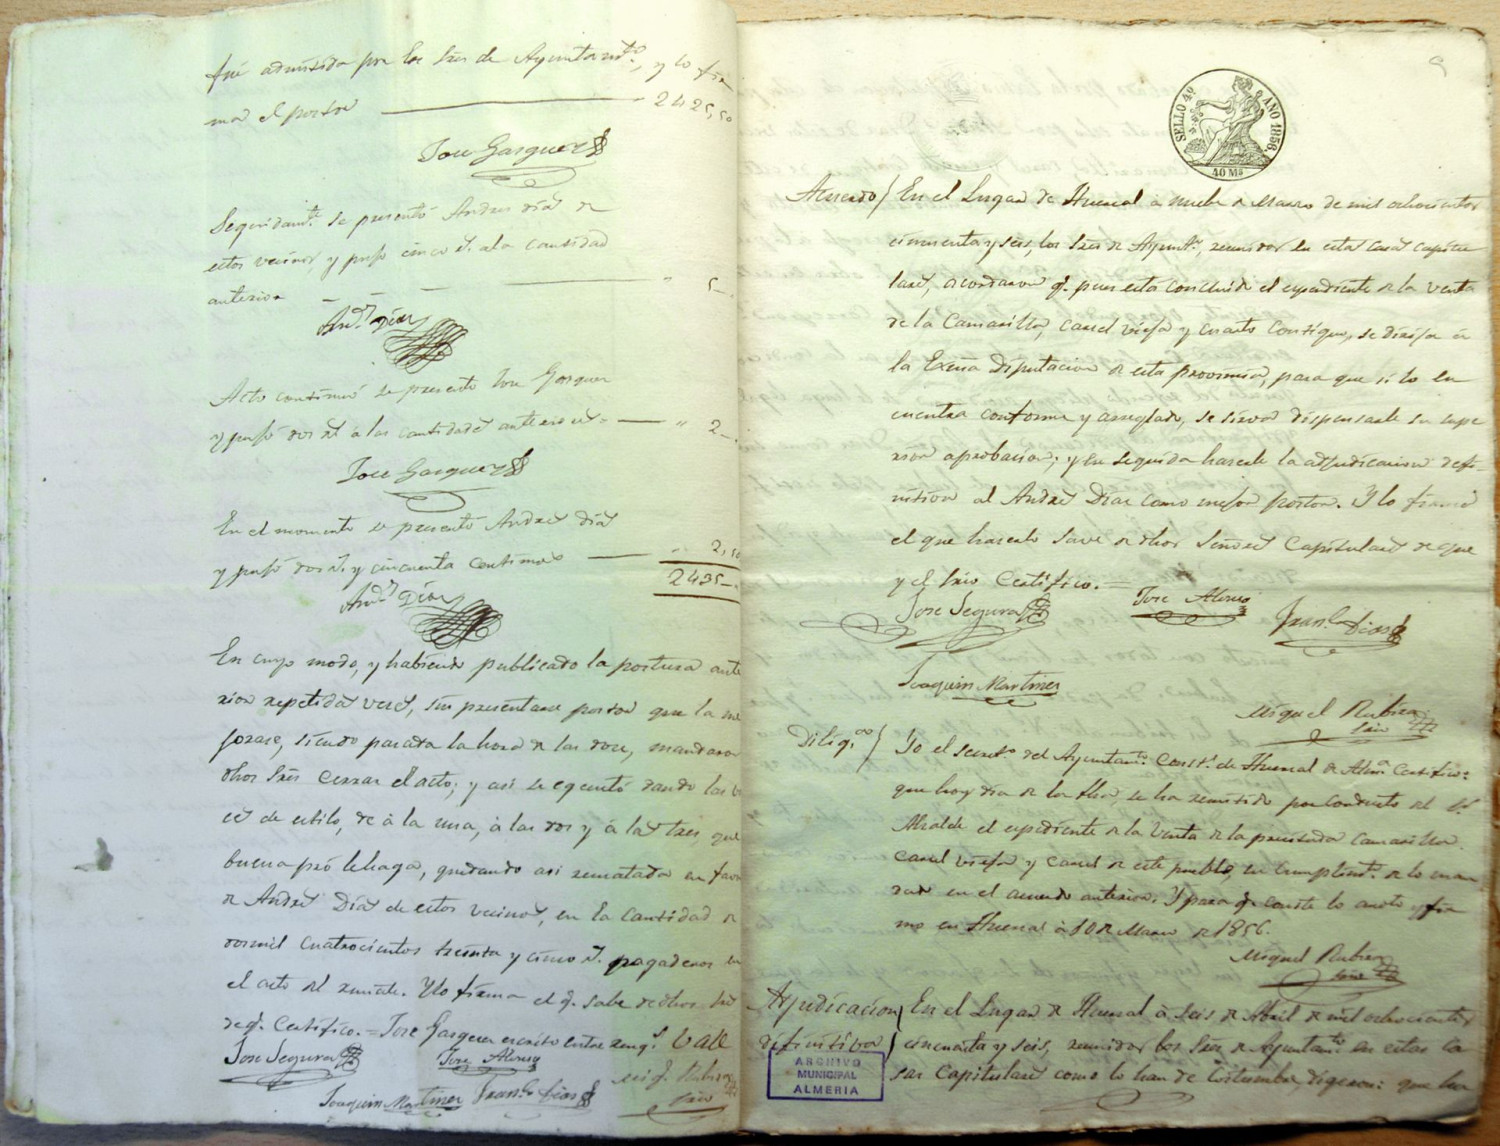 fué admitida por los Sres de Ayuntamto, y lo fir
ma el postor 2425,50
Jose Gasquez
Seguidamte se presentó Andres Diaz de
estos vecinos, y puso cinco rs. a la cantidad
anterior " 5-
Andrs Diaz
Acto continuo se presentó Jose Gasquez
y pujó dos rs a las cantidades anteriores " 2-
Jose Gasquez
En el momento se presentó Andres Diaz
y pujó dos rs. y cincuenta centimos " 2,50
2435-
Andrs Diaz
En cuyo modo, y habiendo publicado la postura ante
rior repetidas veces, sin presentarse postor que la me
jorase, siendo pasada la hora de las doce, mandaron
dhos Sres cerrar el acto; y asi se egecutó dando las vo
ces de estilo, de á la una, á las dos y á las tres, que
buena pró le haga, quedando asi rematada en favor
de Andres Diaz de estos vecinos, en la cantidad de
dos mil cuatrocientos treinta y cinco rs. pagaderos en
el acto del remate. Y lo firma el q. sabe de dhos Sres
de q. Certifico.= Jose Gasquez escrito entre rengs Vale
Jose Segura Jose Alonso
Joaquin Martinez Franco Dias Migl Rubira
Srio
9
SELLO 4º AÑO 1856.
40 Ms
Acuerdo/ En el Lugar de Huercal á nueve de Marzo de mil ochocientos
cincuenta y seis, los Sres de Ayunto, reunidos en estas casas capitu
lares, acordaron q. pues esta concluido el espediente de la venta
de la Camarilla, carcel vieja y cuarto contiguo, se dirija á
la Exma Diputacion de esta provincia, para que si lo en
cuentra conforme y arreglado, se sirva dispensarle su supe
rior aprobacion; y en seguida hacerle la adjudicacion defi-
nitiva al Andres Diaz como mejor postor. Y lo firmó
el que hacerlo save de dhos Señores Capitulares de que
yo el Srio Certifico.=
Jose Segura Jose Alonso Franco Dias
Joaquin Martinez
Miguel Rubira
Srio
Diliga/ Yo el secreto del Ayuntamto Constl de Huercal de Alma Certifico:
que hoy dia de la fha, se ha remitido por conducto del Sr
Alcalde el espediente de la venta de la precitada camarilla
carcel vieja y carcel de este pueblo, en cumplimto de lo man
dado en el acuerdo anterior. Y para q. conste lo anoto y fir
mo en Huercal á 10 de Marzo de 1856.
Miguel Rubira
Srio
Ajudicacion/ En el Lugar de Huercal á seis de Abril de mil ochocientos
difinitiva/ cincuenta y seis, reunidos los Sres de Ayuntamto en estas ca
sas Capitulares como lo han de costumbre, digeron: que ha
ARCHIVO
MUNICIPAL
ALMERIA